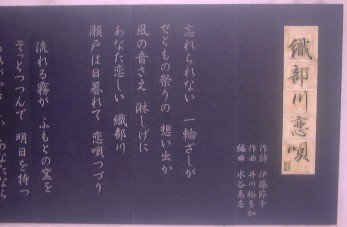 織部川恋唄
作詩 伊藤節子
作曲 井川裕多加
編曲 水谷高志
忘れられない 一輪ざしが
せともの祭りの 想い出か
風の音さえ 淋しげに
あなた恋しい 織部川
瀬戸は日暮れて 恋唄つづり
流れる霧が ふもとの窯を
そっとつつんで 明日を待つ